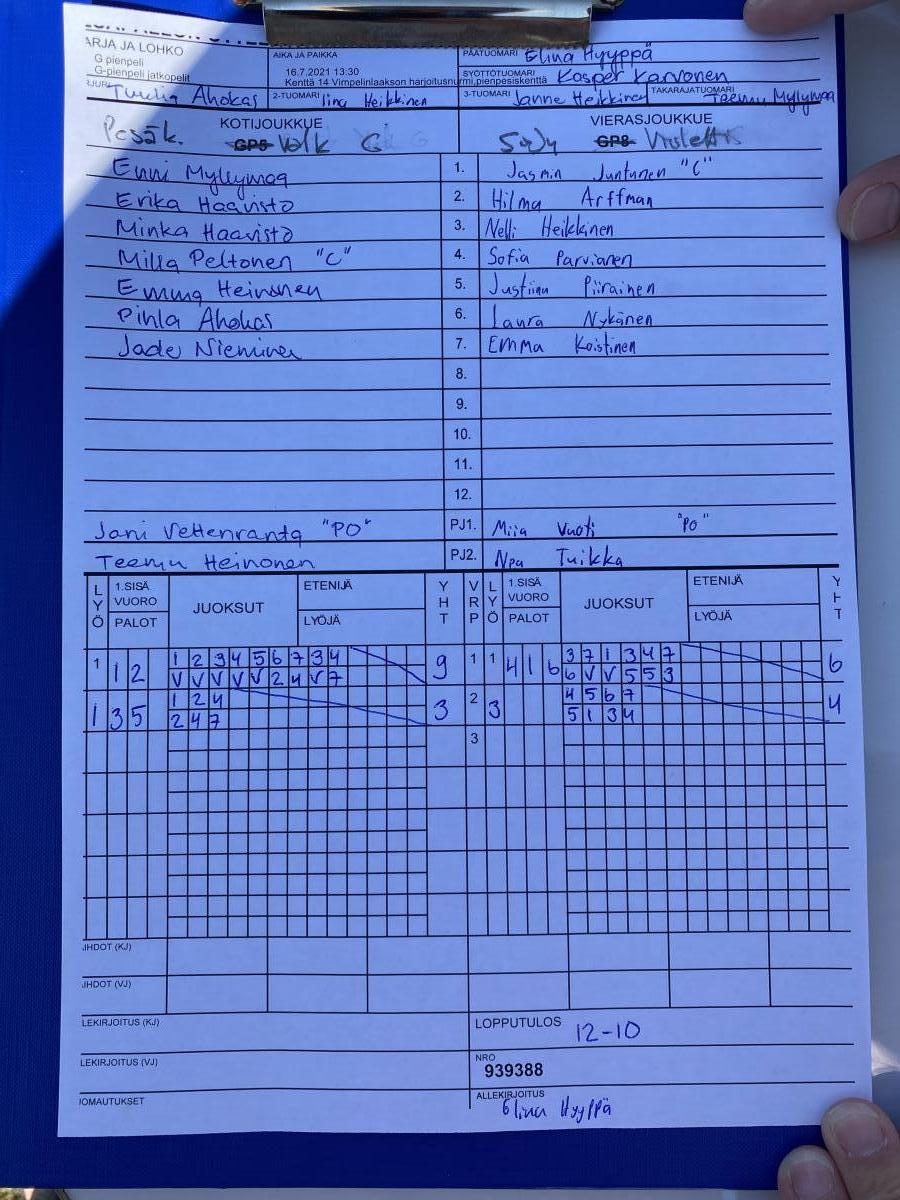 ARJA JA LOHKO
G pienpeli
G-pienpeli jatkopelit
AIKA JA PAIKKA
16.7.2021 13:30
Kenttä 14 Vimpelinlaakson harjoitusnurmi,pienpesiskenttä
PÄÄTUOMARI Elina Hyyppä
SYÖTTÖTUOMARI Kasper Karvonen
Tuulia Ahokas 2-TUOMARI Iina Heikkinen 3-TUOMARI Janne Heikkinen TAKARAJATUOMARI Teemu Myllymaa
KOTIJOUKKUE VIERASJOUKKUE
Pesäk. GP5 Valk G SoJy GP8 Violetti
Enni Myllymaa 1. Jasmin Juntunen "C"
Erika Haavisto 2. Hilma Arffman
Minka Haavisto 3. Nelli Heikkinen
Milla Peltonen "C" 4. Sofia Parvianen
Emma Heinonen 5. Justiina Piirainen
Pihla Ahokas 6. Laura Nykänen
Jade Nieminen 7. Emma Koistinen
8.
9.
10.
11.
12.
Jani Vettenranta "PO" PJ1. Miia Vuoti "PO"
Teemu Heinonen PJ2. Noa Tuikka
LYÖ 1.SISÄ VUORO PALOT JUOKSUT ETENIJÄ LYÖJÄ YHT VRP LYÖ 1.SISÄ VUORO PALOT JUOKSUT ETENIJÄ LYÖJÄ YHT
1 1 2 1 2 3 4 5 6 7 3 4 9 1 1 4 1 6 3 7 1 3 4 7 6
V V V V V 2 4 V 7 6 V V 5 5 3
1 3 5 1 2 4 3 2 3 4 5 6 7 4
2 4 7 5 1 3 4
3
JHDOT (KJ)
JHDOT (VJ)
LEKIRJOITUS (KJ) LOPPUTULOS 12-10
LEKIRJOITUS (VJ) NRO
939388
IOMAUTUKSET ALLEKIRJOITUS
Elina Hyyppä